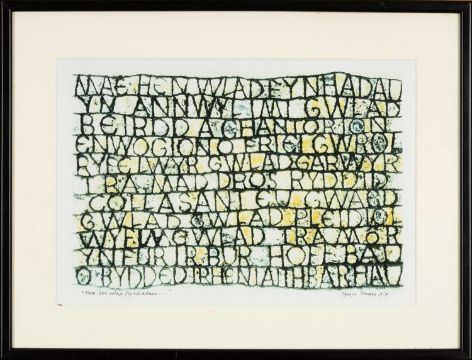 MAE HEN WLAD FY NHADAU
YN ANNWYL I MI GWLAD
BEIRDD A CHANTORION
ENWOGION O FRI GWROL
RYFELWYR GWLADGARWYR
TRA MAD DROS RYDDID
COLLASANT EU GWAED
GWLAD GWLAD PLEIDIOL
WYF GWLAD TRA MOR
YN FUR IR BUR HOFF BAU
O BYDDED IR HENIAITH BARHAU
"Mae hen wlad fy nhadau ....."
A/P